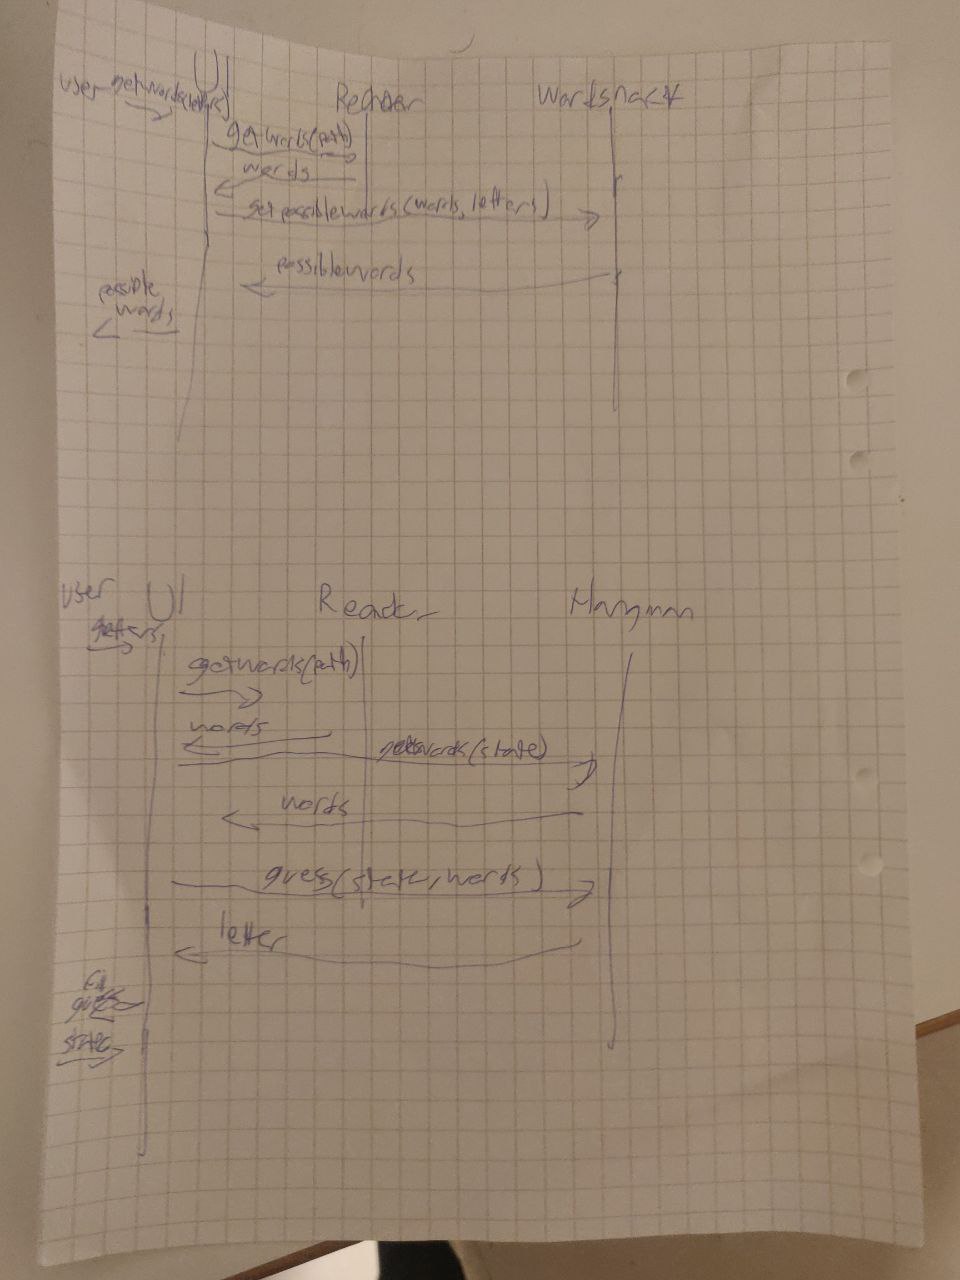 UI
user getwords(letters) Reader Wordsnack
getwords(path)
words
getpossiblewords(words, letters)
possiblewords
possible
words
user UI Reader Hangman
getwords(path)
words
words(state)
words
guess(state, words)
letter
state